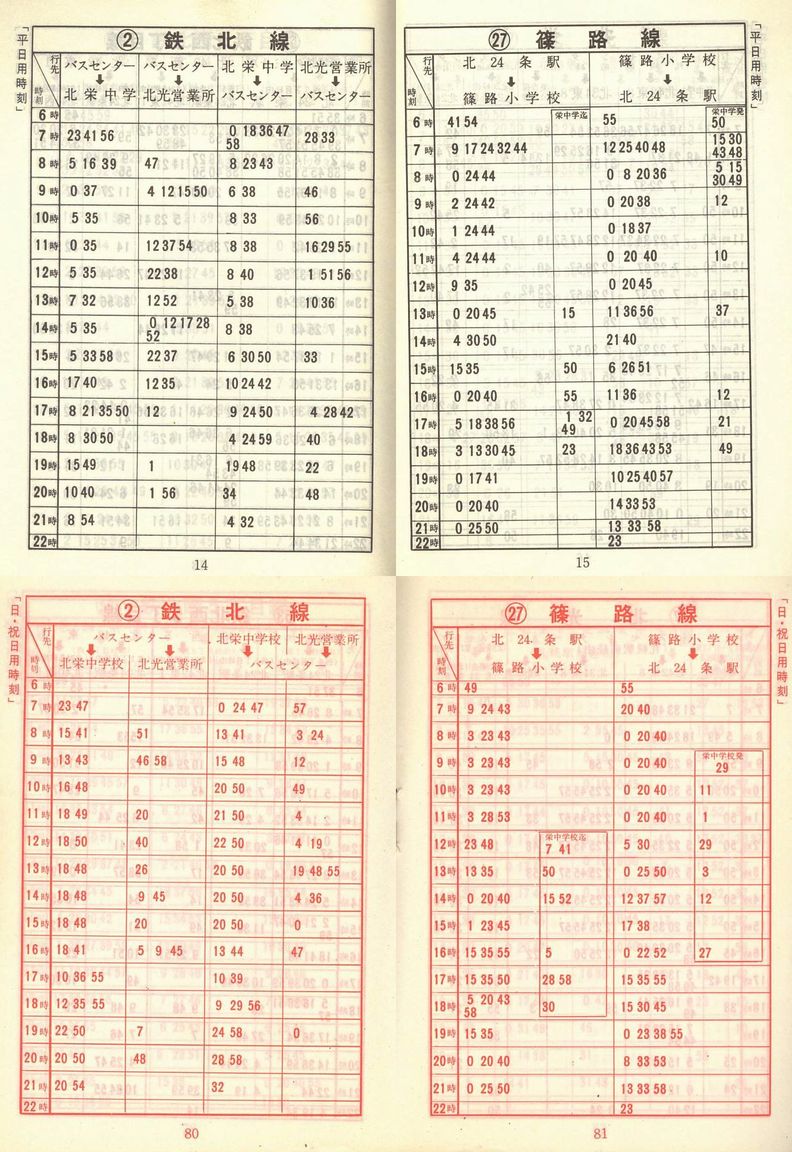 「平日用時刻」
② 鉄北線
行先 時刻 バスセンター↓北栄中学 バスセンター↓北光営業所 北栄中学↓バスセンター 北光営業所↓バスセンター
6時
7時 23 41 56 0 18 36 47 58 28 33
8時 5 16 39 47 8 23 43
9時 0 37 4 12 15 50 6 38 46
10時 5 35 8 33 56
11時 0 35 12 37 54 8 38 16 29 55
12時 5 35 22 38 8 40 1 51 56
13時 7 32 12 52 5 38 10 36
14時 5 35 0 12 17 28 52 8 38
15時 5 33 58 22 37 6 30 50 33
16時 17 40 12 35 10 24 42
17時 8 21 35 50 12 9 24 50 4 28 42
18時 8 30 50 4 24 59 40
19時 15 49 1 19 48 22
20時 10 40 1 56 34 48
21時 8 54 4 32
22時
14
「平日用時刻」
㉗ 篠路線
行先 時刻 北24条駅↓篠路小学校 篠路小学校↓北24条駅
6時 41 54 栄中学校迄 55 栄中学校発 50
7時 9 17 24 32 44 12 25 40 48 15 30 43 48
8時 0 24 44 0 8 20 36 5 15 30 49
9時 2 24 42 0 20 38 12
10時 1 24 44 0 18 37
11時 4 24 44 0 20 40 10
12時 9 35 0 20 45
13時 0 20 45 15 11 36 56 37
14時 4 30 50 21 40
15時 15 35 50 6 26 51
16時 0 20 40 55 11 36 12
17時 5 18 38 56 1 32 49 0 20 45 58 21
18時 3 13 30 45 23 18 36 43 53 49
19時 0 17 41 10 25 40 57
20時 0 20 40 14 33 53
21時 0 25 50 13 33 58
22時 23
15
「日・祝日用時刻」
② 鉄北線
行先 時刻 バスセンター↓北栄中学校 ↓北光営業所 北栄中学校↓ 北光営業所↓バスセンター
6時
7時 23 47 0 24 47 57
8時 15 41 51 13 41 3 24
9時 13 43 46 58 15 48 12
10時 16 48 20 50 49
11時 18 49 20 21 50 4
12時 18 50 40 22 50 4 19
13時 18 48 26 20 50 19 48 55
14時 18 48 9 45 20 50 4 36
15時 18 48 20 20 50 0
16時 18 41 5 9 45 13 44 47
17時 10 36 55 10 39
18時 12 35 55 9 29 56
19時 22 50 7 24 58 0
20時 20 50 48 28 58
21時 20 54 32
22時
80
「日・祝日用時刻」
㉗ 篠路線
行先 時刻 北24条駅↓篠路小学校 篠路小学校↓北24条駅
6時 49 55
7時 9 24 43 20 40
8時 3 23 43 0 20 40
9時 3 23 43 0 20 40 栄中学校発 29
10時 3 23 43 0 20 40 11
11時 3 28 53 0 20 40 1
12時 23 48 栄中学校迄 7 41 5 30 29
13時 13 35 50 0 25 50 3
14時 0 20 40 15 52 12 37 57 12
15時 1 23 45 17 38
16時 15 35 55 5 0 22 52 27
17時 15 35 50 28 58 15 35 55
18時 5 20 43 58 30 15 30 45
19時 15 35 0 23 38 55
20時 0 20 40 8 33 53
21時 0 25 50 13 33 58
22時 23
81